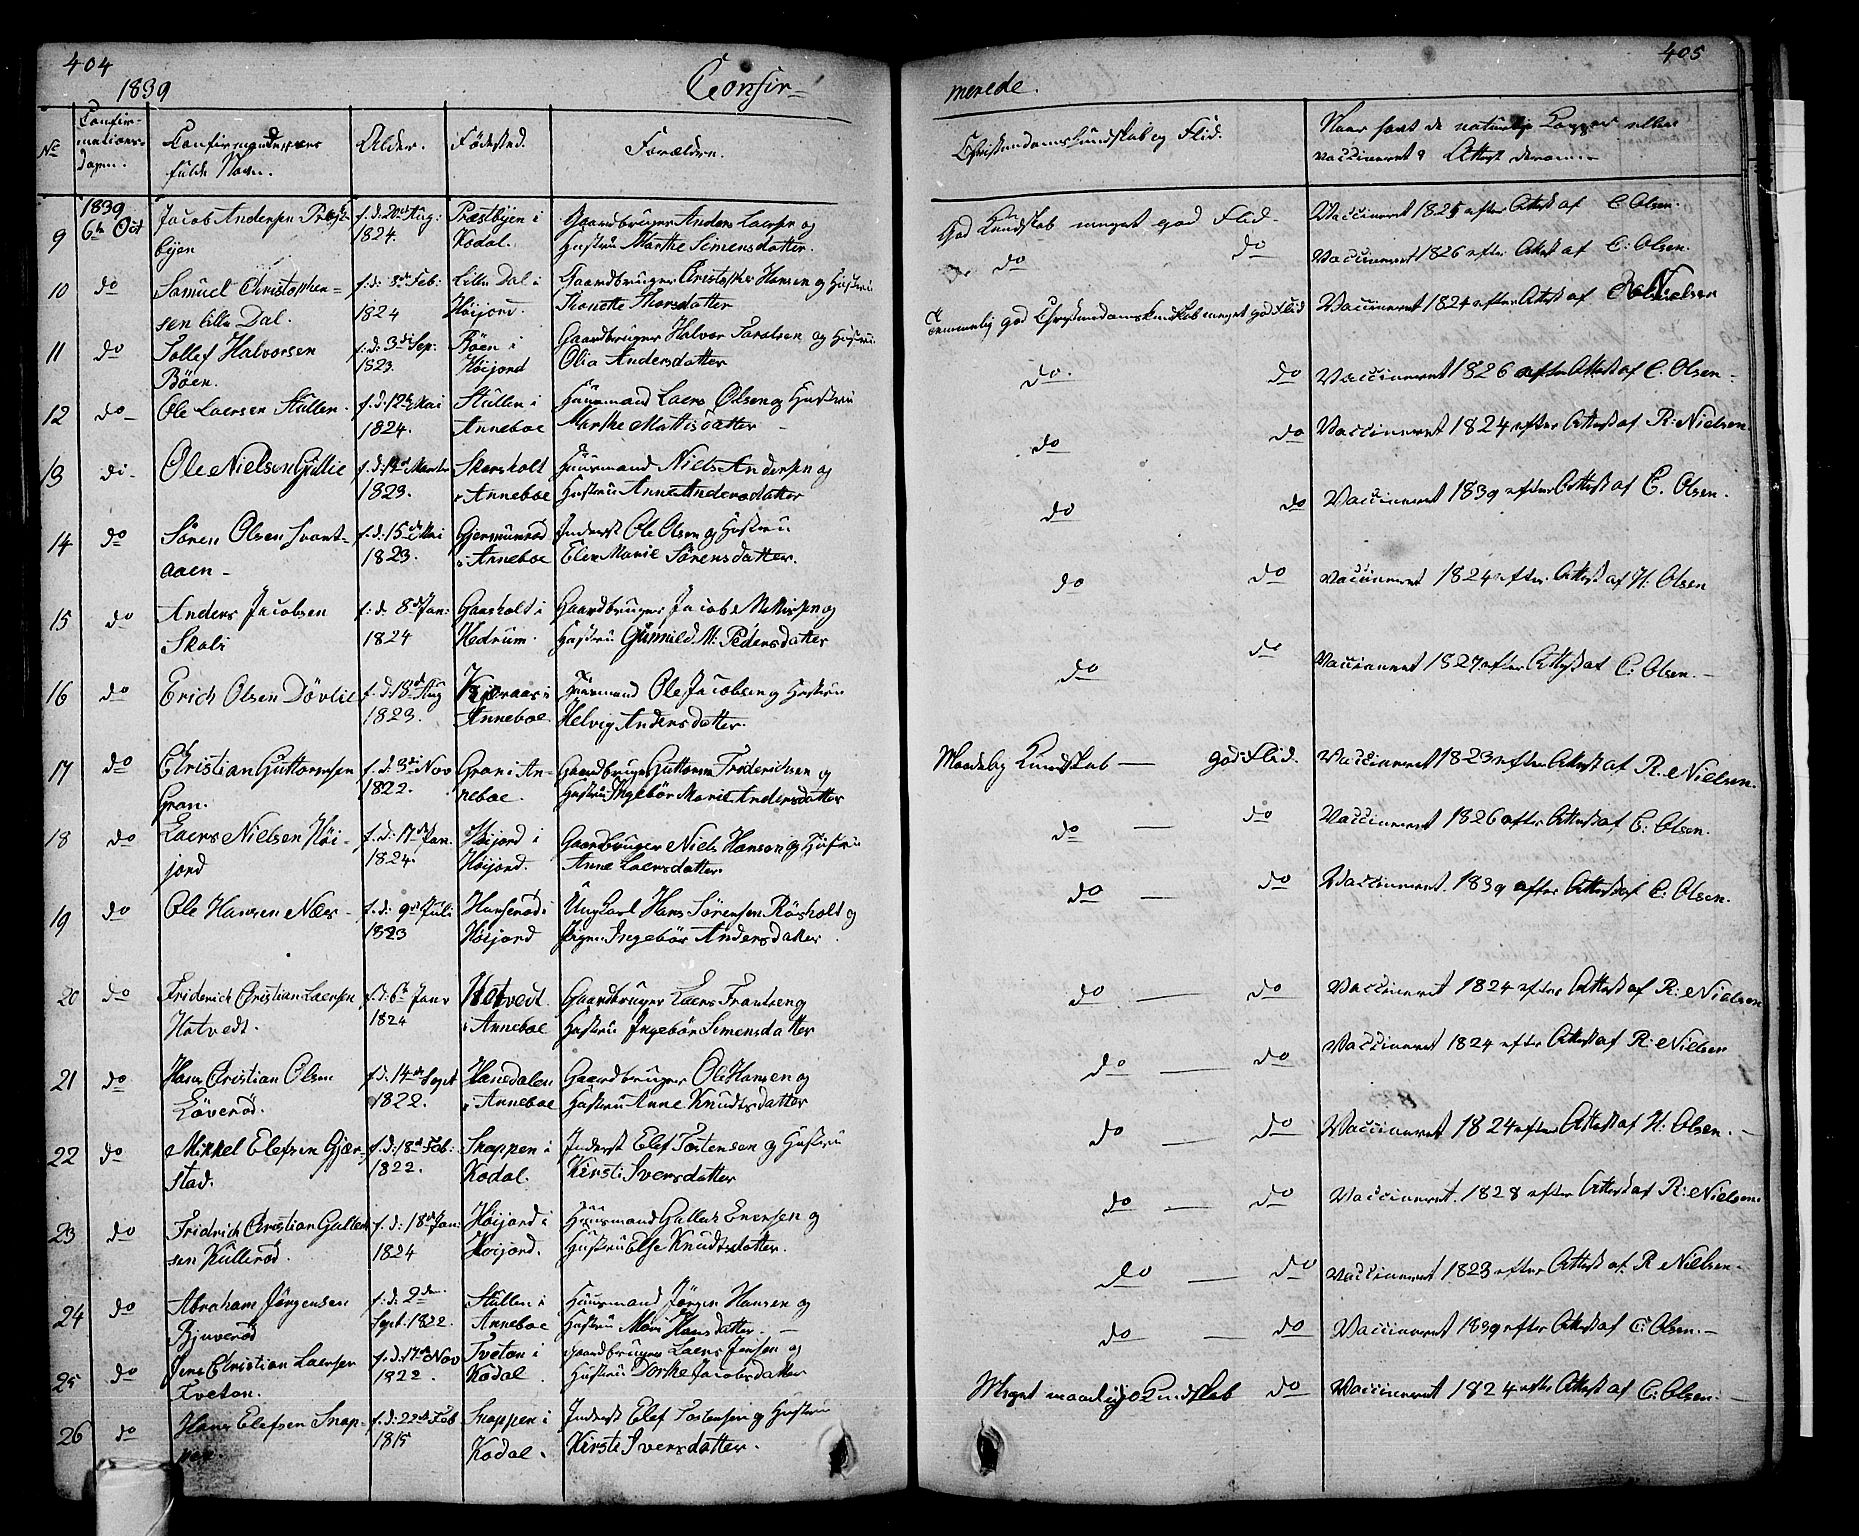 404
1839
Confir-
No
Confir-
mations-
dagen.
Confirmandernes
fulde Navn.
Alder.
Födested.
Forældre.
1839
9
6te Oct
Jacob Andersen Præst-
byen
f. d. 20de Aug:
1824.
Præstbyen i
Kodal.
Gaardbruger Anders Laersen og
Hustru Marthe Simensdatter.
10
do
Samuel Christophen-
sen Lille Dal.
f: d: 8de Feb:
1824
Lille Dal i
Höijord.
Gaardbruger Christopher Hansen og Hustru
Thorsdatter
11
do
Tollef Halvorsen
Böen.
f: d: 3de Sep:
1823.
Böen i
Höijord
Gaardbruger Halvor Taralsen og Hustru
Olia Andersdatter
12
do
Ole Laersen Stullen.
f: d: 12te Mai
1824.
Stullen i
Anneboe
Huusmand Laers Olsen og Hustru
Marthe Mattisdatter
13
do.
Ole Nielsen Gullie
f: d: 12te Marts
1823.
Skarsholt
i Anneboe
Huusmand Niels Andersen og
Hustru Anne Andersdatter
14
do
Sören Olsen Svart-
aaen
f: d: 15de Mai
1823.
Gjermunrod
i Anneboe
Inderst Ole Olsen og Hustru
Elen Marie Sörensdatter.
15
do
Anders Jacobsen
Skoli
f: d: 8de Jan:
1824
Gaasholt i
Hedrum.
Gaardbruger Jacob Mattisen og
Hustru Gunnild M: Pedersdatter
16
do
Erich Olsen Dövlie
f: d: 18de Aug
1823.
Kjæraas i
Anneboe.
Huusmand Ole Jacobsen og Hustru
Helvig Andersdatter.
17
do
Christian Guttormsen
Gran.
f. d: 3de Nov
1822.
Gran i An-
neboe.
Gaardbruger Guttorm Friderichsen og
Hustru Ingebör Marie Andersdatter
18
do
Laers Nielsen Höi-
jord
f. d: 17de Jan.
1824.
Höijord i
Höijord.
Gaardbruger Niels Hansen og Hustru
Anne Laersdatter.
19
do
Ole Hansen Næs
f. d: 9de Juli
1823
Hanserod i
Höijord
Ungkarl Hans Sörensen Rösholt og
Pigen Ingebör Andersdatter
20
do
Friderich Christian Laersen
Hotvedt.
f. d: 6te Janr
1824
Hotvedt
i Anneboe
Gaardbruger Laers Frantsen og
Hustru Ingebör Simensdatter
21
do
Hans Christian Olsen
Löverod.
f. d: 14de Sept
1822.
Hanedalen
i Anneboe
Gaardbruger Ole Hansen og
Hustru Anne Knudtsdatter
22
do
Mikkel Elefsen Gjær-
stad.
f. d: 18de Feb:
1822.
Snappen i
Kodal.
Inderst Elef Tostensen og Hustru
Kirsti Iversdatter
23
do
Fridrich Christian Gullek-
sen Kullerod.
f: d: 18de Jan:
1824
Höijord i
Höijord.
Huusmand Gullek Evensen og
Hustru Else Knudtsdatter.
24
do
Abraham Jörgensen
Bjuverod
f: d: 2den
Sept: 1822.
Stullen i
Anneboe
Huusmand Jörgen Hansen og
Hustru Mari Hansdatter
25
do
Jens Christian Laersen
Tveton.
f. d: 17de Nov
1822.
Tveton i
Kodal
Gaardbruger Laers Jensen og
Hustru Dorthe Jacobsdatter
26
do
Hans Elefsen Snap-
pen.
f. d: 22de Feb
1815
Snappen i
Kodal.
Inderst Elef Tostensen og Hustru
Kirsti Iversdatter.
405
merede.
Christendomskundskab og Flid.
Naar havt de naturlige Kopper eller
vaccineret? Attest derom
God Kundskab meget god Flid.
Vaccineret 1825 efter Attest af C Olsen.
do do
Vaccineret 1826 efter Attest af C: Olsen.
Temmelig god Christendomskundskab meget god Flid
Vaccineret 1824 efter Attest af Nielsen
do. do
Vaccineret 1826 efter Attest af C. Olsen.
do do
Vaccineret 1824 efter Attest af R: Nielsen
do do
Vaccineret 1839 efter Attest af C. Olsen.
do do
Vaccineret 1824 efter Attest af H: Olsen
do do
Vaccineret 1827 efter Attest af C: Olsen.
Maadelig Kundskab — god Flid.
Vaccineret 1823 efter Attest af R. Nielsen.
do — do
Vaccineret 1826 efter Attest af C: Olsen.
do — do
Vaccineret 1839 efter Attest af C: Olsen.
do — do
Vaccineret 1824 efter Attest af R: Nielsen
do — do
Vaccineret 1824 efter Attest af R: Nielsen
do — do
Vaccineret 1824 efter Attest af H: Olsen.
do — do
Vaccineret 1828 efter Attest af R: Nielsen
do — do
Vaccineret 1823 efter Attest af R Nielsen.
do — do
Vaccineret 1839 efter Attest af C Olsen.
Meget maadelig Kundskab do
Vaccineret 1824 efter Attest af C: Olsen.